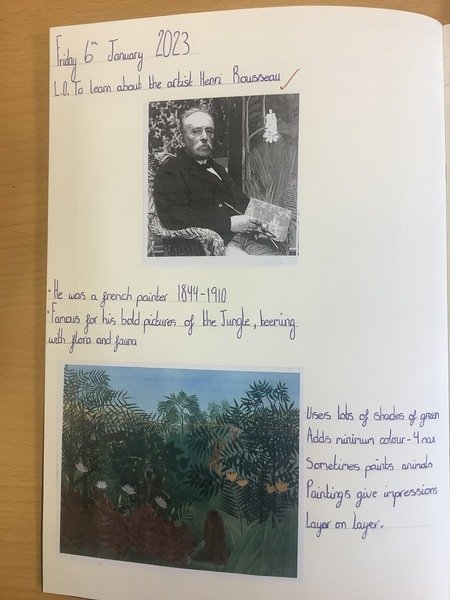 Friday 6th January 2023
L.O. To learn about the artist Henri Rousseau
• He was a french painter 1844-1910
• Famous for his bold pictures of the Jungle, beeming
with flora and fauna
Users lots of shades of green
Adds minimum colour - 4 max
Sometimes paints animals
Paintings give impressions
Layer on layer.